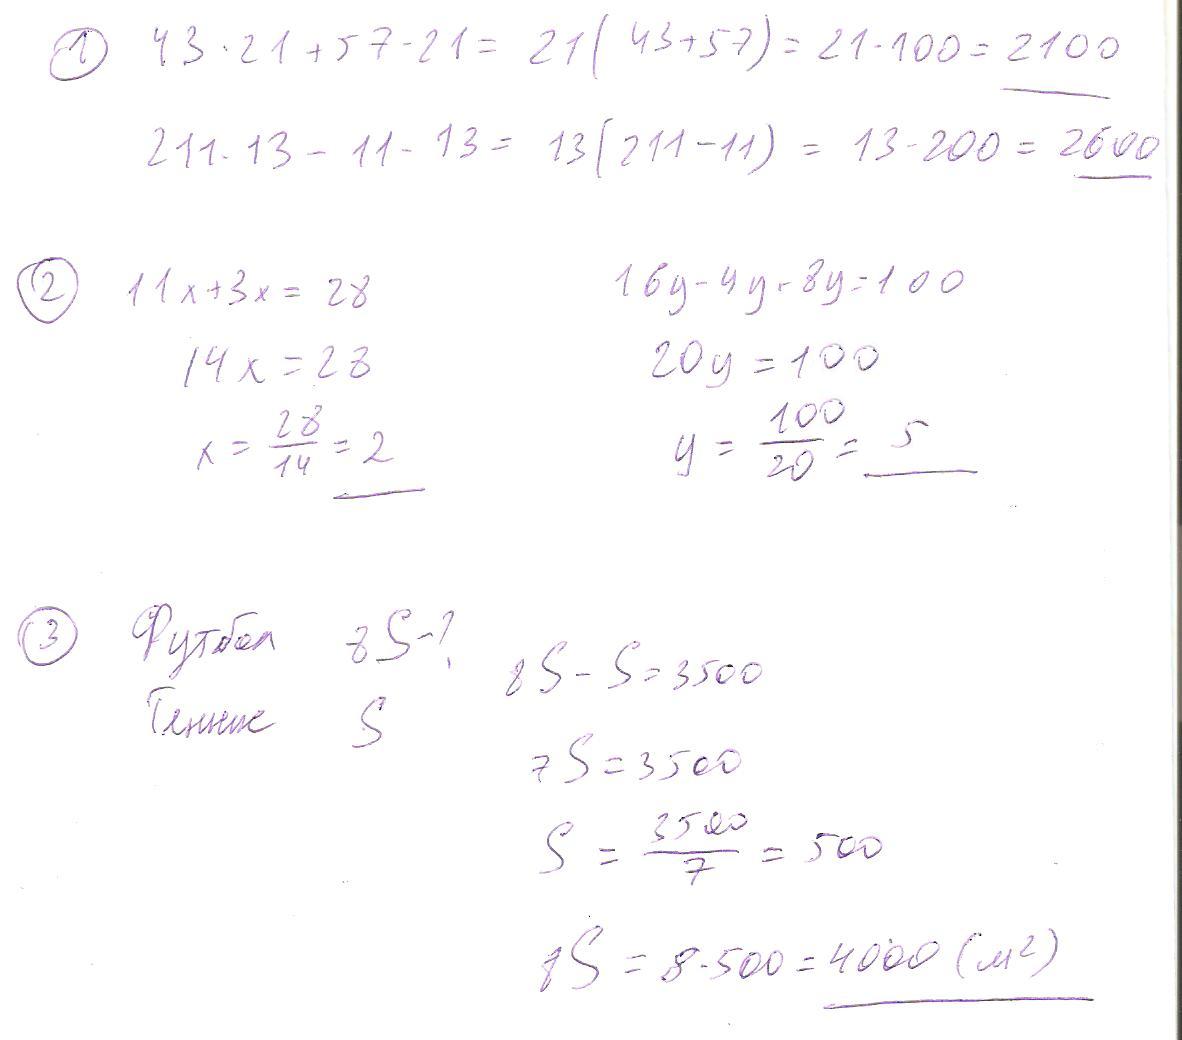 ① 43·21+57·21= 21(43+57)=21·100=2100
211·13-11·13= 13(211-11) = 13·200=2600
② 11x+3x=28
14x=28
x=28/14=2
16y-4y+8y=100
20y=100
y=100/20=5
③ Футбол 8S-?
Теннис S
8S-S=3500
7S=3500
S=3500/7=500
8S=8·500=4000(м²)